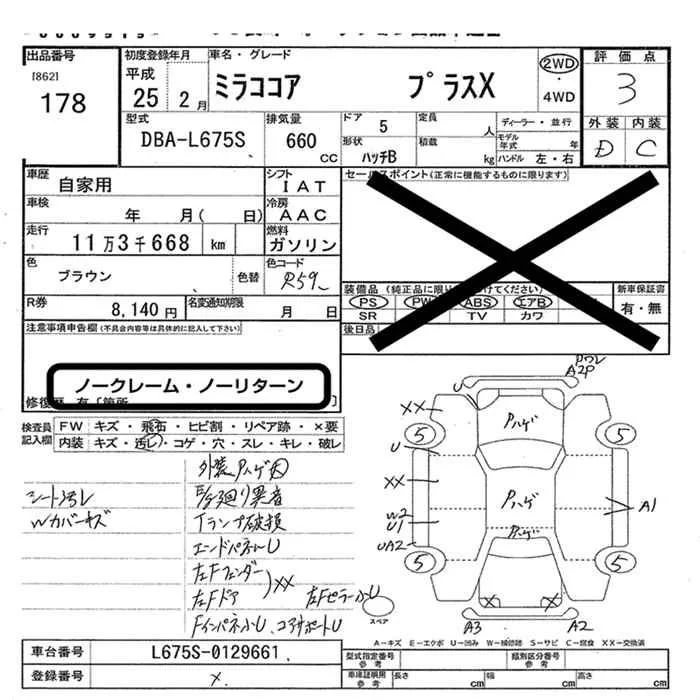 出品番号
[862]
178
初度登録年月
平成
25 2 月
車名・グレード
ミラココア プラスX
2WD
4WD
評価点
3
外装 内装
D C
型式
DBA-L675S
排気量
660 CC
ドア 5
形状 ハッチB
定員 人
積載 kg
ディーラー・並行
モデル年式 年
ハンドル 左・右
車歴
自家用
シフト
I A T
車検
年 月( 日)
冷房
A A C
走行
11万3千668 km
燃料
ガソリン
色
ブラウン 色替
色コード
R59
R券
8,140 円
名変通知期限
月 日
セールスポイント(正常に機能するものに限ります)
装備品 (純正品に限り けてください)
PS PW ABS エアB
SR TV カワ
新車保証書
有・無
後日品
注意事項申告欄(不具合内容等は具体的に記入して下さい)
ノークレーム・ノーリターン
検査員記入欄
FW キズ・飛石・ヒビ割・リペア跡・×要
内装 キズ・汚レ・コゲ・穴・スレ・キレ・破レ
シート汚レ
Wカバーキズ
外装Pハゲ大
E/g廻り異音
Tランプ破損
エンドパネルU
左Fフェンダー
左Fドア
XX
左FピラーホU
FインパネホU、コアサポートU
U
A2P
XX
Pハゲ
5
5
U
XX
Pハゲ
W2
U1
A1
UA2
Pハゲ
5
5
X X
A3 A2
スペア
A－キズ E－エクボ U－凹み W－補修跡 S－サビ C－腐食 XX－交換済
車台番号
L675S-0129661
登録番号
×
型式指定番号 参考
類別区分番号 参考
車庫証明用 参考
長さ cm
幅 cm
高さ cm